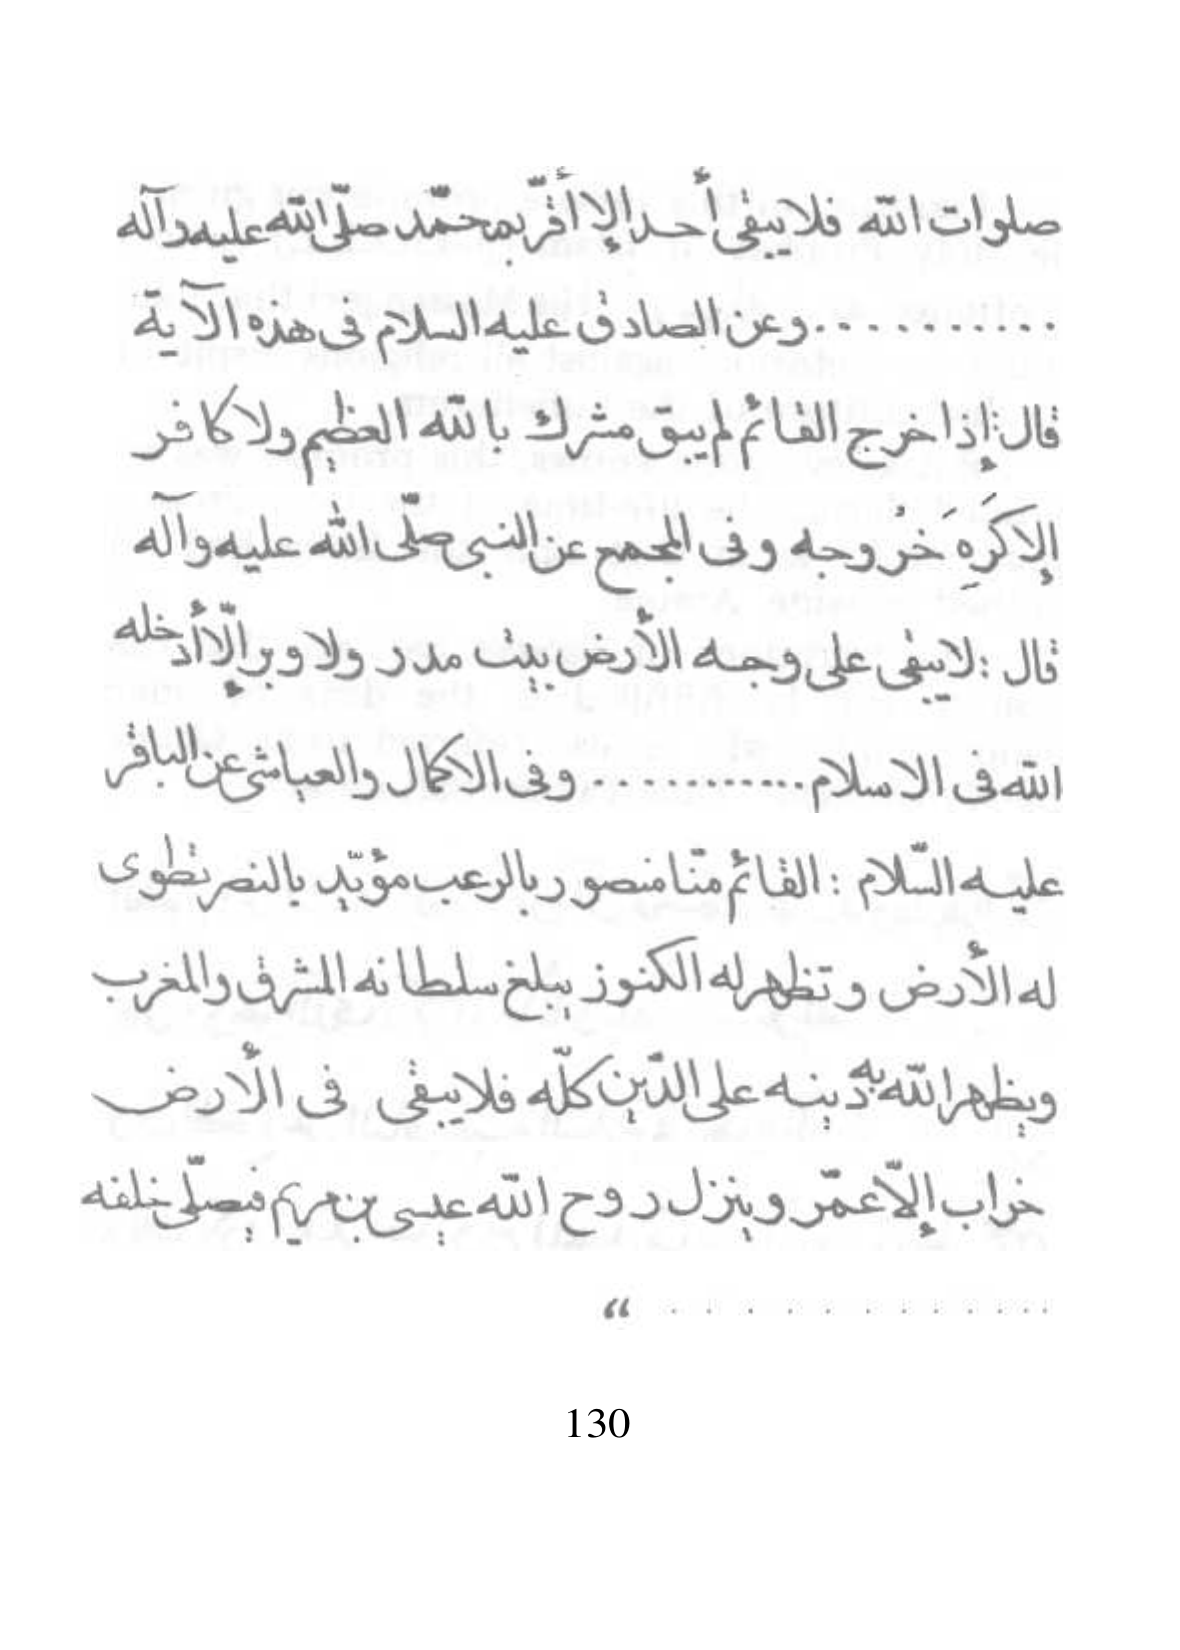 صلوات الله فلا يبقى أحد إلا أقرّ بمحمّد صلّى الله عليه وآله
........... وعن الصادق عليه السلام فى هذه الآية
قال: إذا خرج القائم لم يبق مشرك بالله العظيم ولا كافر
إلا كَرِهَ خُروجه وفى المجمع عن النبى صلّى الله عليه وآله
قال : لا يبقى على وجه الأرض بيت مدر ولا وبر إلّا أدخله
الله فى الاسلام ........... وفى الاكمال والعياشى عن الباقر
عليه السّلام : القائم منّا منصور بالرعب مؤيّد بالنصر تطوى
له الأرض وتظهر له الكنوز يبلغ سلطانه المشرق والمغرب
ويظهر الله به دينه على الدّين كلّه فلا يبقى فى الأرض
خراب إلّا عمّر وينزل روح الله عيسى بن مريم فيصلّى خلفه
............. “
130